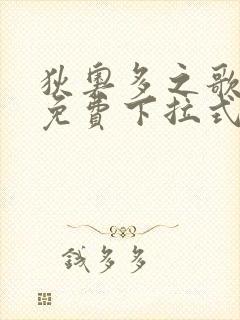 狄奧多之歌
免費下拉式
錢多多